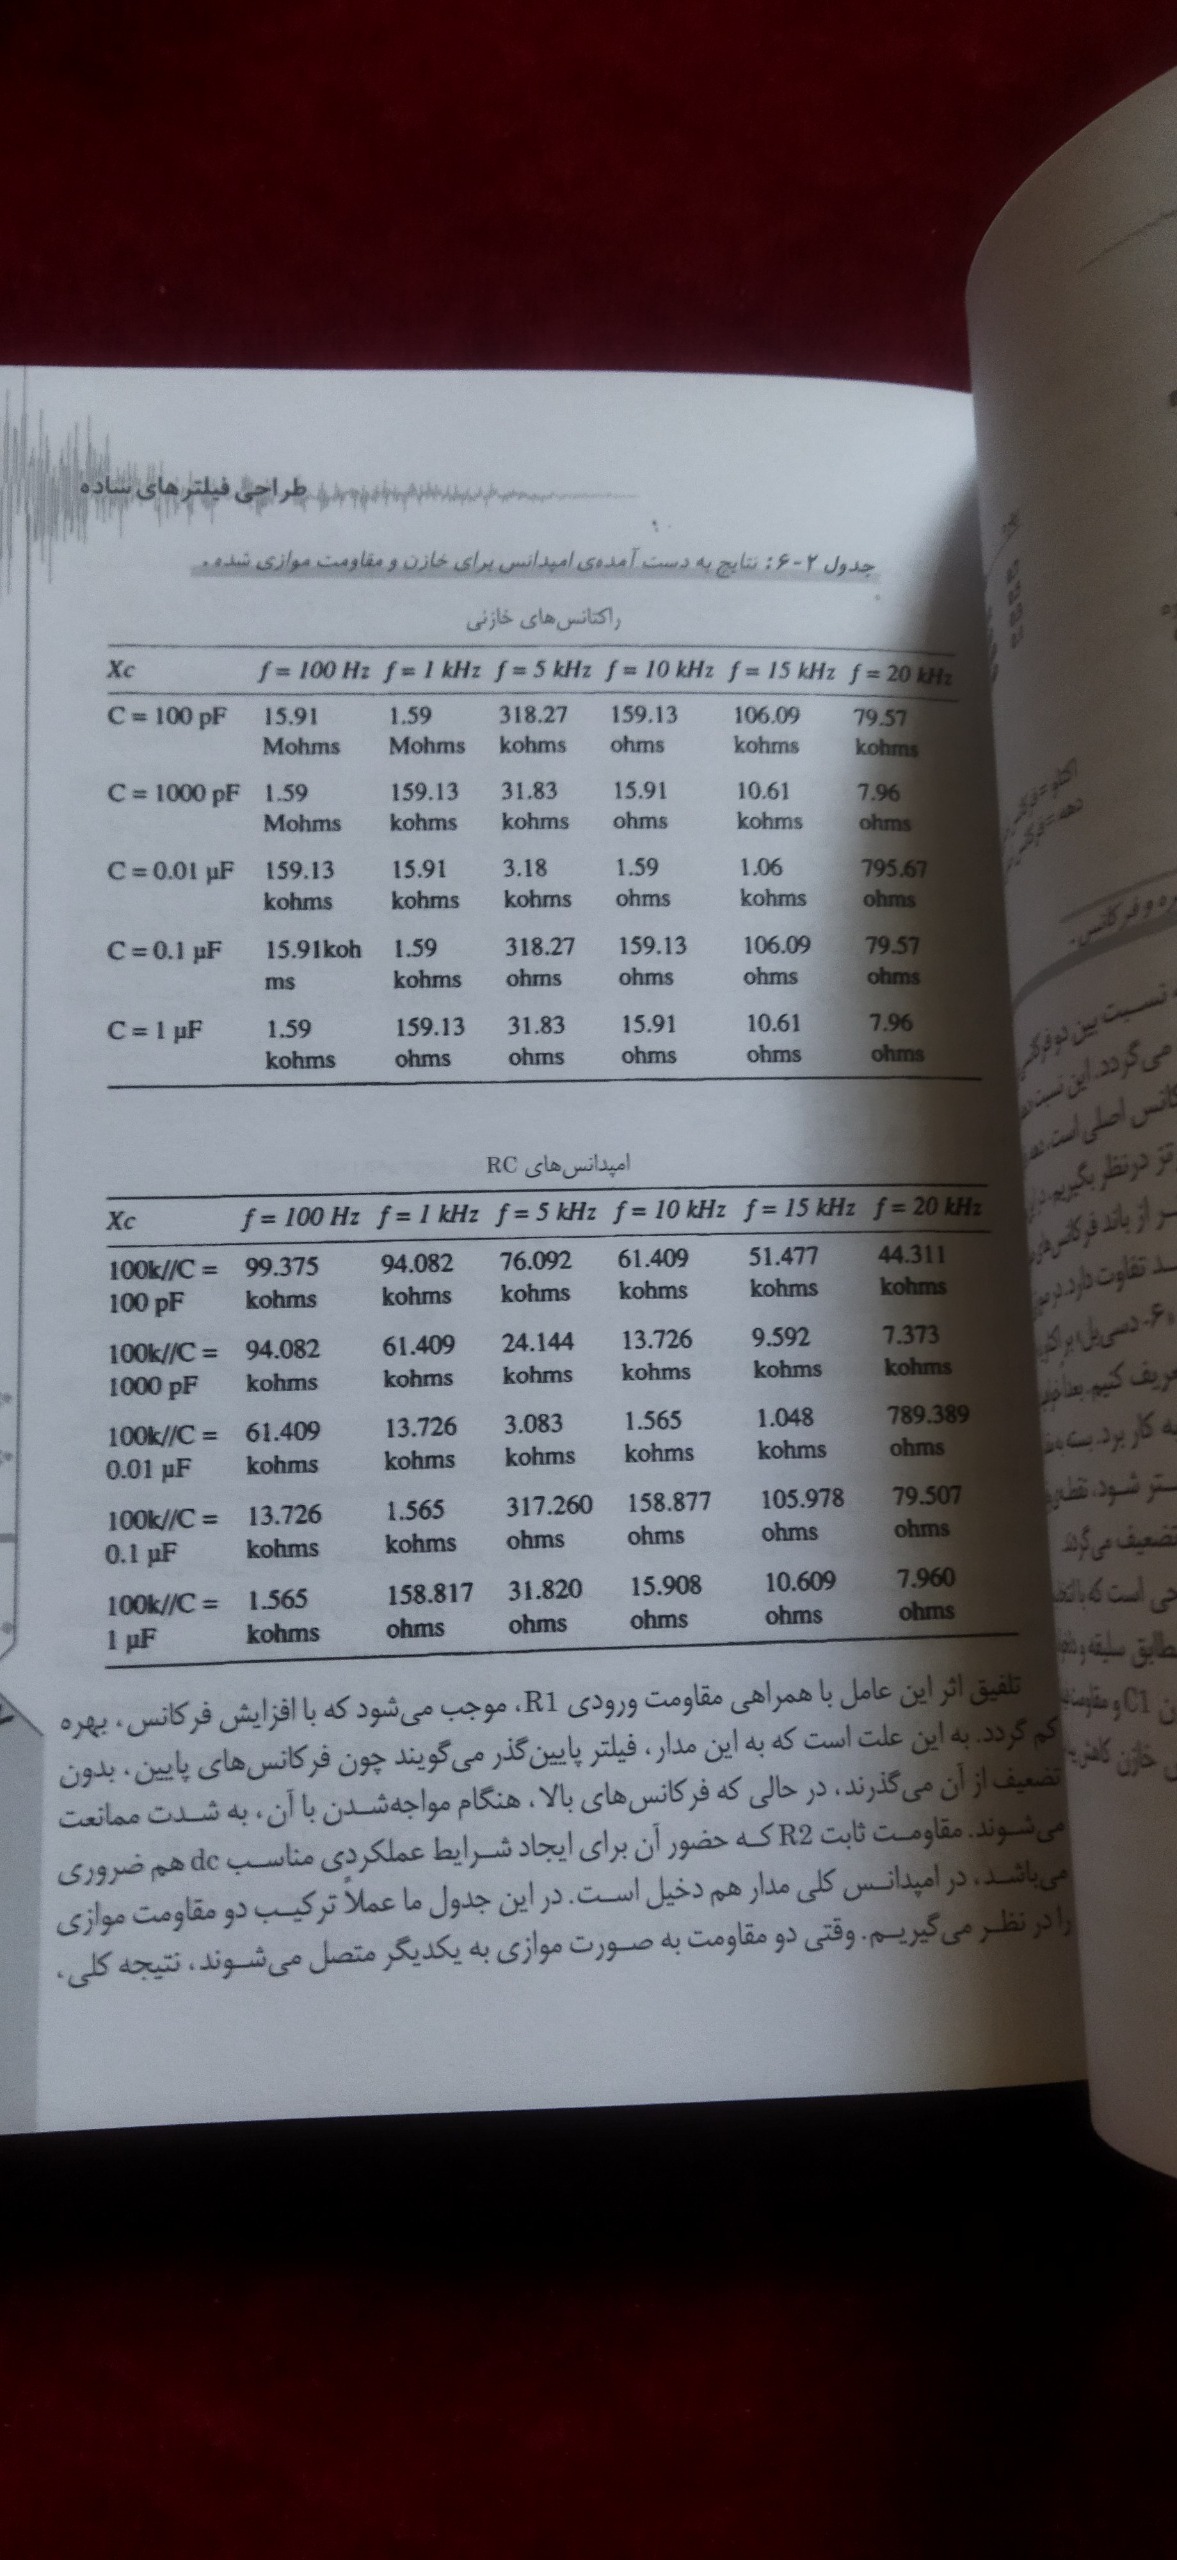 طراحی فیلترهای ساده
جدول ۲-۶: نتایج به دست آمده‌ی امپدانس برای خازن و مقاومت موازی شده.
راکتانس‌های خازنی
Xc f = 100 Hz f = 1 kHz f = 5 kHz f = 10 kHz f = 15 kHz f = 20 kHz
C = 100 pF 15.91 1.59 318.27 159.13 106.09 79.57
Mohms Mohms kohms ohms kohms kohms
C = 1000 pF 1.59 159.13 31.83 15.91 10.61 7.96
Mohms kohms kohms ohms kohms ohms
C = 0.01 µF 159.13 15.91 3.18 1.59 1.06 795.67
kohms kohms kohms ohms kohms ohms
C = 0.1 µF 15.91koh 1.59 318.27 159.13 106.09 79.57
ms kohms ohms ohms ohms ohms
C = 1 µF 1.59 159.13 31.83 15.91 10.61 7.96
kohms ohms ohms ohms ohms ohms
امپدانس‌های RC
Xc f = 100 Hz f = 1 kHz f = 5 kHz f = 10 kHz f = 15 kHz f = 20 kHz
100k//C = 99.375 94.082 76.092 61.409 51.477 44.311
100 pF kohms kohms kohms kohms kohms kohms
100k//C = 94.082 61.409 24.144 13.726 9.592 7.373
1000 pF kohms kohms kohms kohms kohms kohms
100k//C = 61.409 13.726 3.083 1.565 1.048 789.389
0.01 µF kohms kohms kohms kohms kohms ohms
100k//C = 13.726 1.565 317.260 158.877 105.978 79.507
0.1 µF kohms kohms ohms ohms ohms ohms
100k//C = 1.565 158.817 31.820 15.908 10.609 7.960
1 µF kohms ohms ohms ohms ohms ohms
تلفیق اثر این عامل با همراهی مقاومت ورودی R1، موجب می‌شود که با افزایش فرکانس، بهره
کم گردد. به این علت است که به این مدار، فیلتر پایین‌گذر می‌گویند چون فرکانس‌های پایین، بدون
تضعیف از آن می‌گذرند، در حالی که فرکانس‌های بالا، هنگام مواجه‌شدن با آن، به شدت ممانعت
می‌شوند. مقاومت ثابت R2 که حضور آن برای ایجاد شرایط عملکردی مناسب dc هم ضروری
می‌باشد، در امپدانس کلی مدار هم دخیل است. در این جدول ما عملاً ترکیب دو مقاومت موازی
را در نظر می‌گیریم. وقتی دو مقاومت به صورت موازی به یکدیگر متصل می‌شوند، نتیجه کلی،